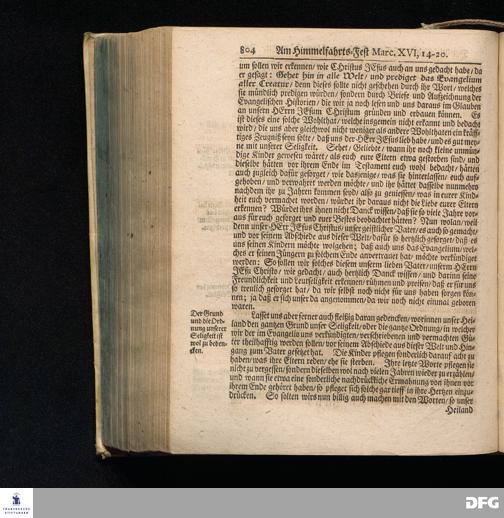 804 Am Himmelfahrts-Fest Marc. XVI, 14-20.
um sollen wir erkennen/ wie CHristus JEsus auch an uns gedacht habe/ da
er gesagt: Gehet hin in alle Welt/ und prediget das Evangelium
aller Creatur/ denn dieses sollte nicht geschehen durch ihr Wort/ welches
sie mündlich predigen würden/ sondern durch Briefe und Aufzeichnung der
Evangelischen Historien/ die wir ja noch lesen und uns daraus im Glauben
an unsern HErrn JEsum Christum gründen und erbauen können. Es
ist dieses eine solche Wohlthat/ welche insgemein nicht erkannt und bedacht
wird/ die uns aber gleichwol nicht weniger als andere Wohlthaten ein kräff-
tiges Zeugniß seyn solte/ daß uns der HErr JEsus lieb habe/ und es gut mey-
ne mit unserer Seligkeit. Sehet/ Geliebte/ wann ihr noch kleine unmün-
dige Kinder gewesen wäret/ als euch eure Eltern etwa gestorben sind/ und
dieselbe hätten vor ihrem Ende im Testament euch wohl bedacht/ hätten
auch zugleich dafür gesorget/ wie dasjenige/ was sie hinterlassen/ euch auf-
gehoben/ und verwahret werden möchte/ und ihr hättet dasselbe nunmehro
nachdem ihr zu Jahren kommen seyd/ also zu geniessen/ was in eurer Kind-
heit euch vermachet worden/ würdet ihr daraus nicht die Liebe eurer Eltern
erkennen? Würdet ihrs ihnen nicht Danck wissen/ daß sie so viele Jahre vor-
aus für euch gesorget und euer Bestes beobachtet hätten? Nun wolan/ weil
denn unser HErr JEsus Christus/ unser geistlicher Vater/ es auch so gemacht/
und vor seinem Abschiede aus dieser Welt/ dafür so hertzlich gesorget/ daß es
uns seinen Kindern möchte wolgehen; daß auch uns das Evangelium/ wel-
ches er seinen Jüngern zu solchem Ende anvertrauet hat/ möchte verkündiget
werden: So sollen wir solches diesem unserm lieben Vater/ unserm HErrn
JEsu Christo/ wie gedacht/ auch hertzlich Danck wissen/ und darinn seine
Freundlichkeit und Leutseligkeit erkennen/ rühmen und preisen/ daß er für uns
so treulich gesorget hat/ da wir selbst noch nicht für uns haben sorgen kön-
nen; ja daß er sich unser da angenommen/ da wir noch nicht einmal geboren
waren.
Der Grund
und die Ord-
nung unserer
Seligkeit ist
wol zu beden-
cken.
Lasset uns aber ferner auch fleißig daran gedencken/ worinnen unser Hei-
land den gantzen Grund unser Seligkeit/ oder die gantze Ordnung/ in welcher
wir der im Evangelio uns verkündigten/ verschriebenen und vermachten Gü-
ter theilhafftig werden sollen/ vor seinem Abschiede aus dieser Welt und Hin-
gang zum Vater gesetzet hat. Die Kinder pflegen sonderlich darauf acht zu
haben/ was ihre Eltern reden/ ehe sie sterben. Ihre letzte Worte pflegen sie
nicht zu vergessen/ sondern dieselben wol nach vielen Jahren wieder zu erzählen/
und wann sie etwa eine sonderliche nachdrückliche Ermahnung von ihnen vor
ihrem Ende gehöret haben/ so pfleget sich solche gar tieff in ihre Hertzen einzu-
drücken. So solten wirs nun billig auch machen mit den Worten/ so unser
Heiland
FRANCKESCHE
STIFTUNGEN
DFG